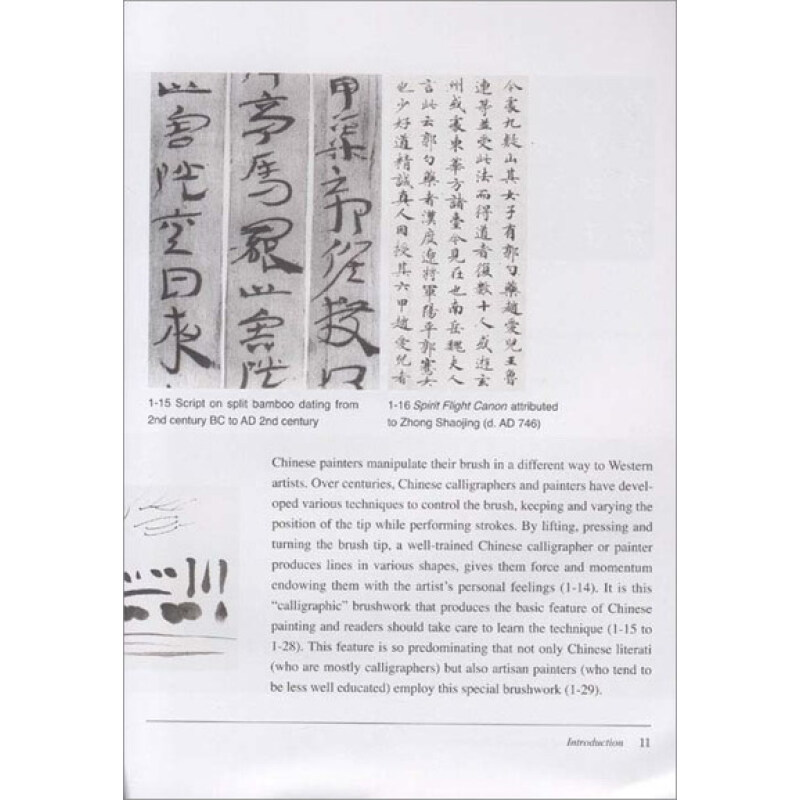 甲渠鄣候
亭馬
今處九疑山其女子有郭勺藥趙愛兒王魯
連等並受此法而得道者復數十人或遊玄
州或處東華方諸臺今見在也南岳魏夫人
言此云郭勺藥者漢度遼將軍陽平郭騫女
也少好道精誠真人因授其六甲趙愛兒者
1-15 Script on split bamboo dating from
2nd century BC to AD 2nd century
1-16 Spirit Flight Canon attributed
to Zhong Shaojing (d. AD 746)
Chinese painters manipulate their brush in a different way to Western
artists. Over centuries, Chinese calligraphers and painters have devel-
oped various techniques to control the brush, keeping and varying the
position of the tip while performing strokes. By lifting, pressing and
turning the brush tip, a well-trained Chinese calligrapher or painter
produces lines in various shapes, gives them force and momentum
endowing them with the artist's personal feelings (1-14). It is this
"calligraphic" brushwork that produces the basic feature of Chinese
painting and readers should take care to learn the technique (1-15 to
1-28). This feature is so predominating that not only Chinese literati
(who are mostly calligraphers) but also artisan painters (who tend to
be less well educated) employ this special brushwork (1-29).
Introduction 11